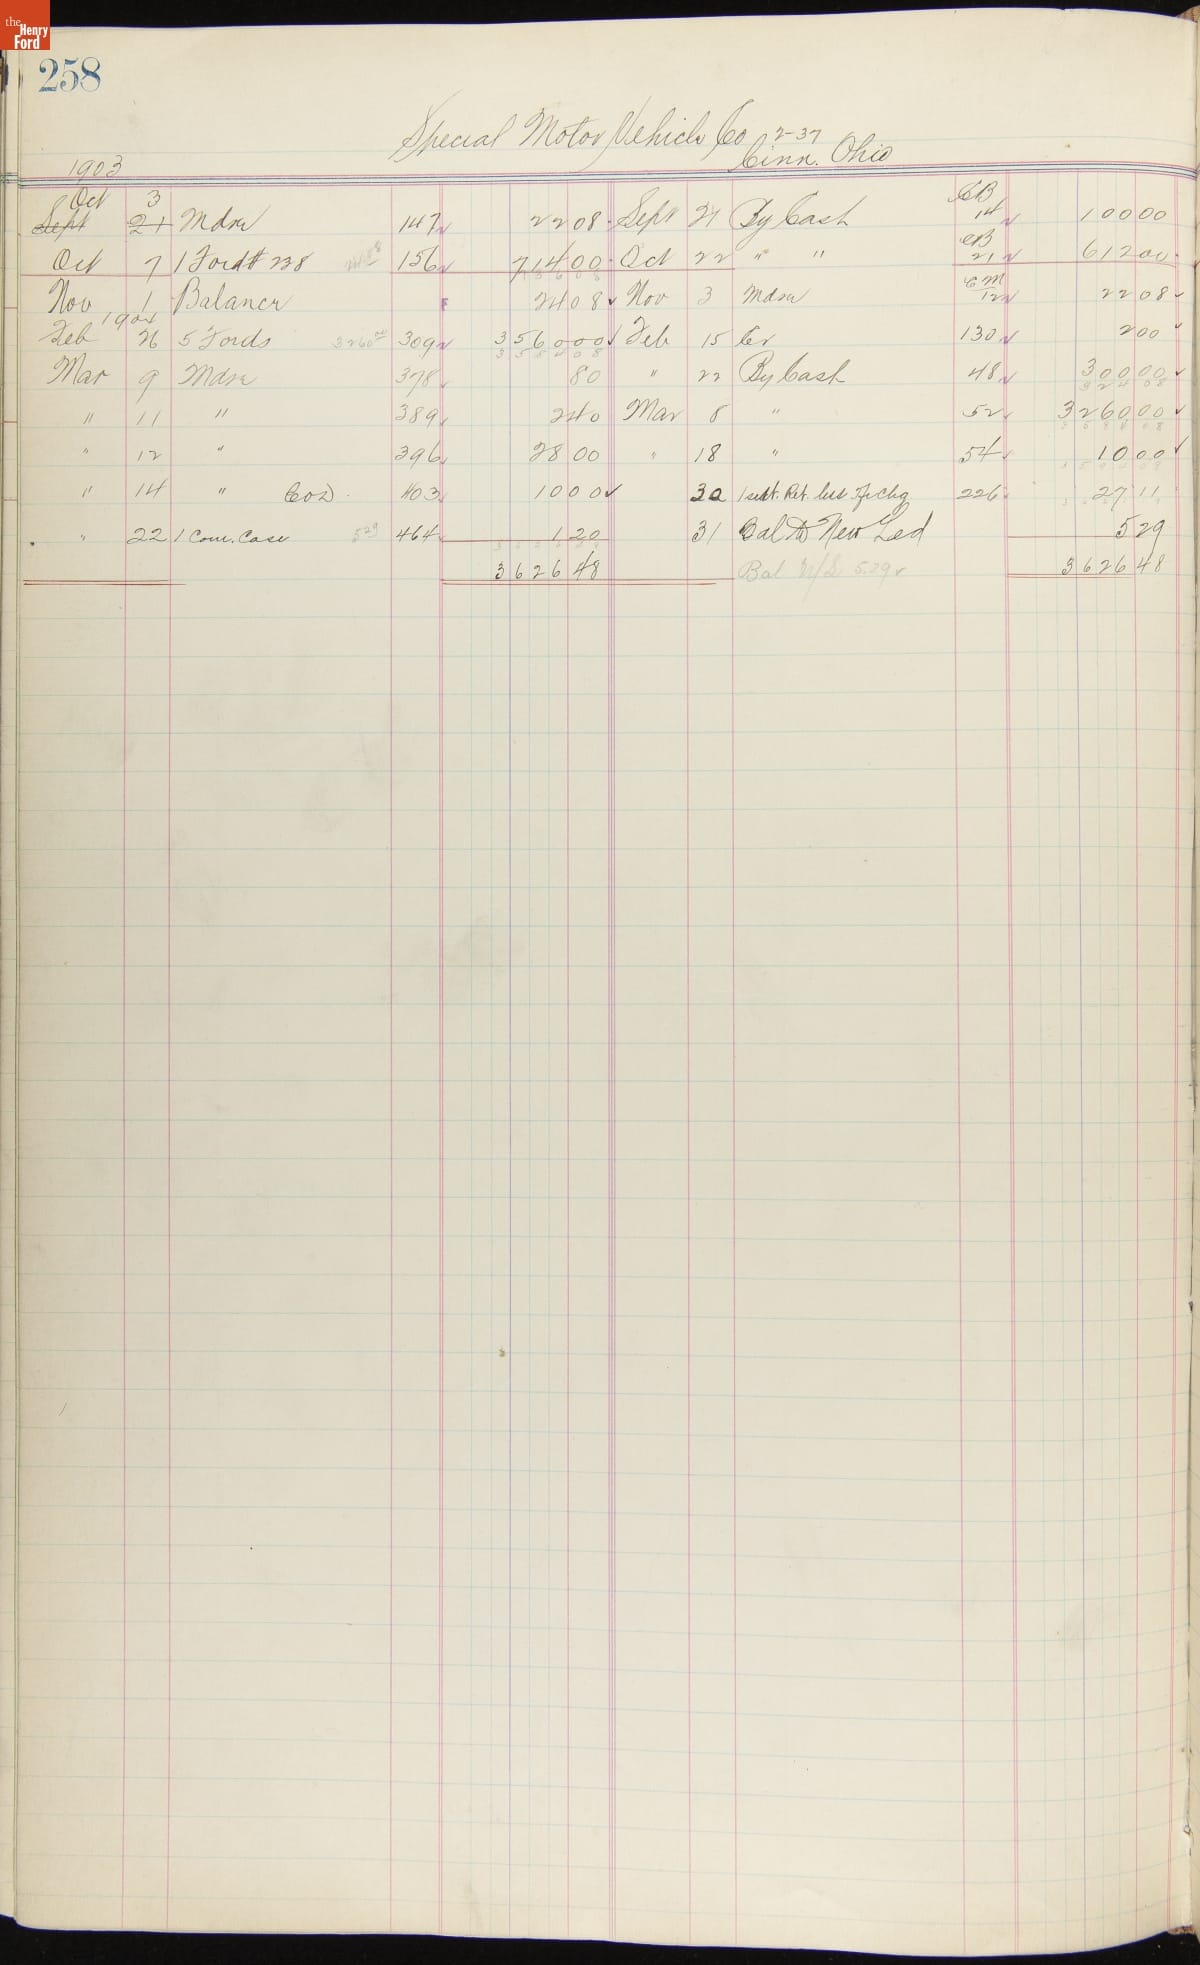 the Henry Ford
258
Special Motor Vehicle Co 2-37
Cinn. Ohio
1903
Oct 3
Sept 21 Mdse 147 22 08 Sept 21 By Cash CB 14 100 00
Oct 7 1 Ford # 238 156 714 00 Oct 22 " " CB 21 612 00
Nov 1 Balance 24 08 Nov 3 Mdse CM 12 22 08
1904
Feb 26 5 Fords 3260 00 309 3560 00 Feb 15 Cr 130 2 00
Mar 9 Mdse 378 80 " 22 By Cash 48 300 00
" 11 " 389 2 40 Mar 8 " 52 3260 00
" 12 " 396 28 00 " 18 " 54 10 00
" 14 " COD 403 10 00 30 226 27 11
" 22 1 Com. Case 529 464 1 20 31 Bal to New Led 5 29
3626 48 Bal N/L 5.29 3626 48